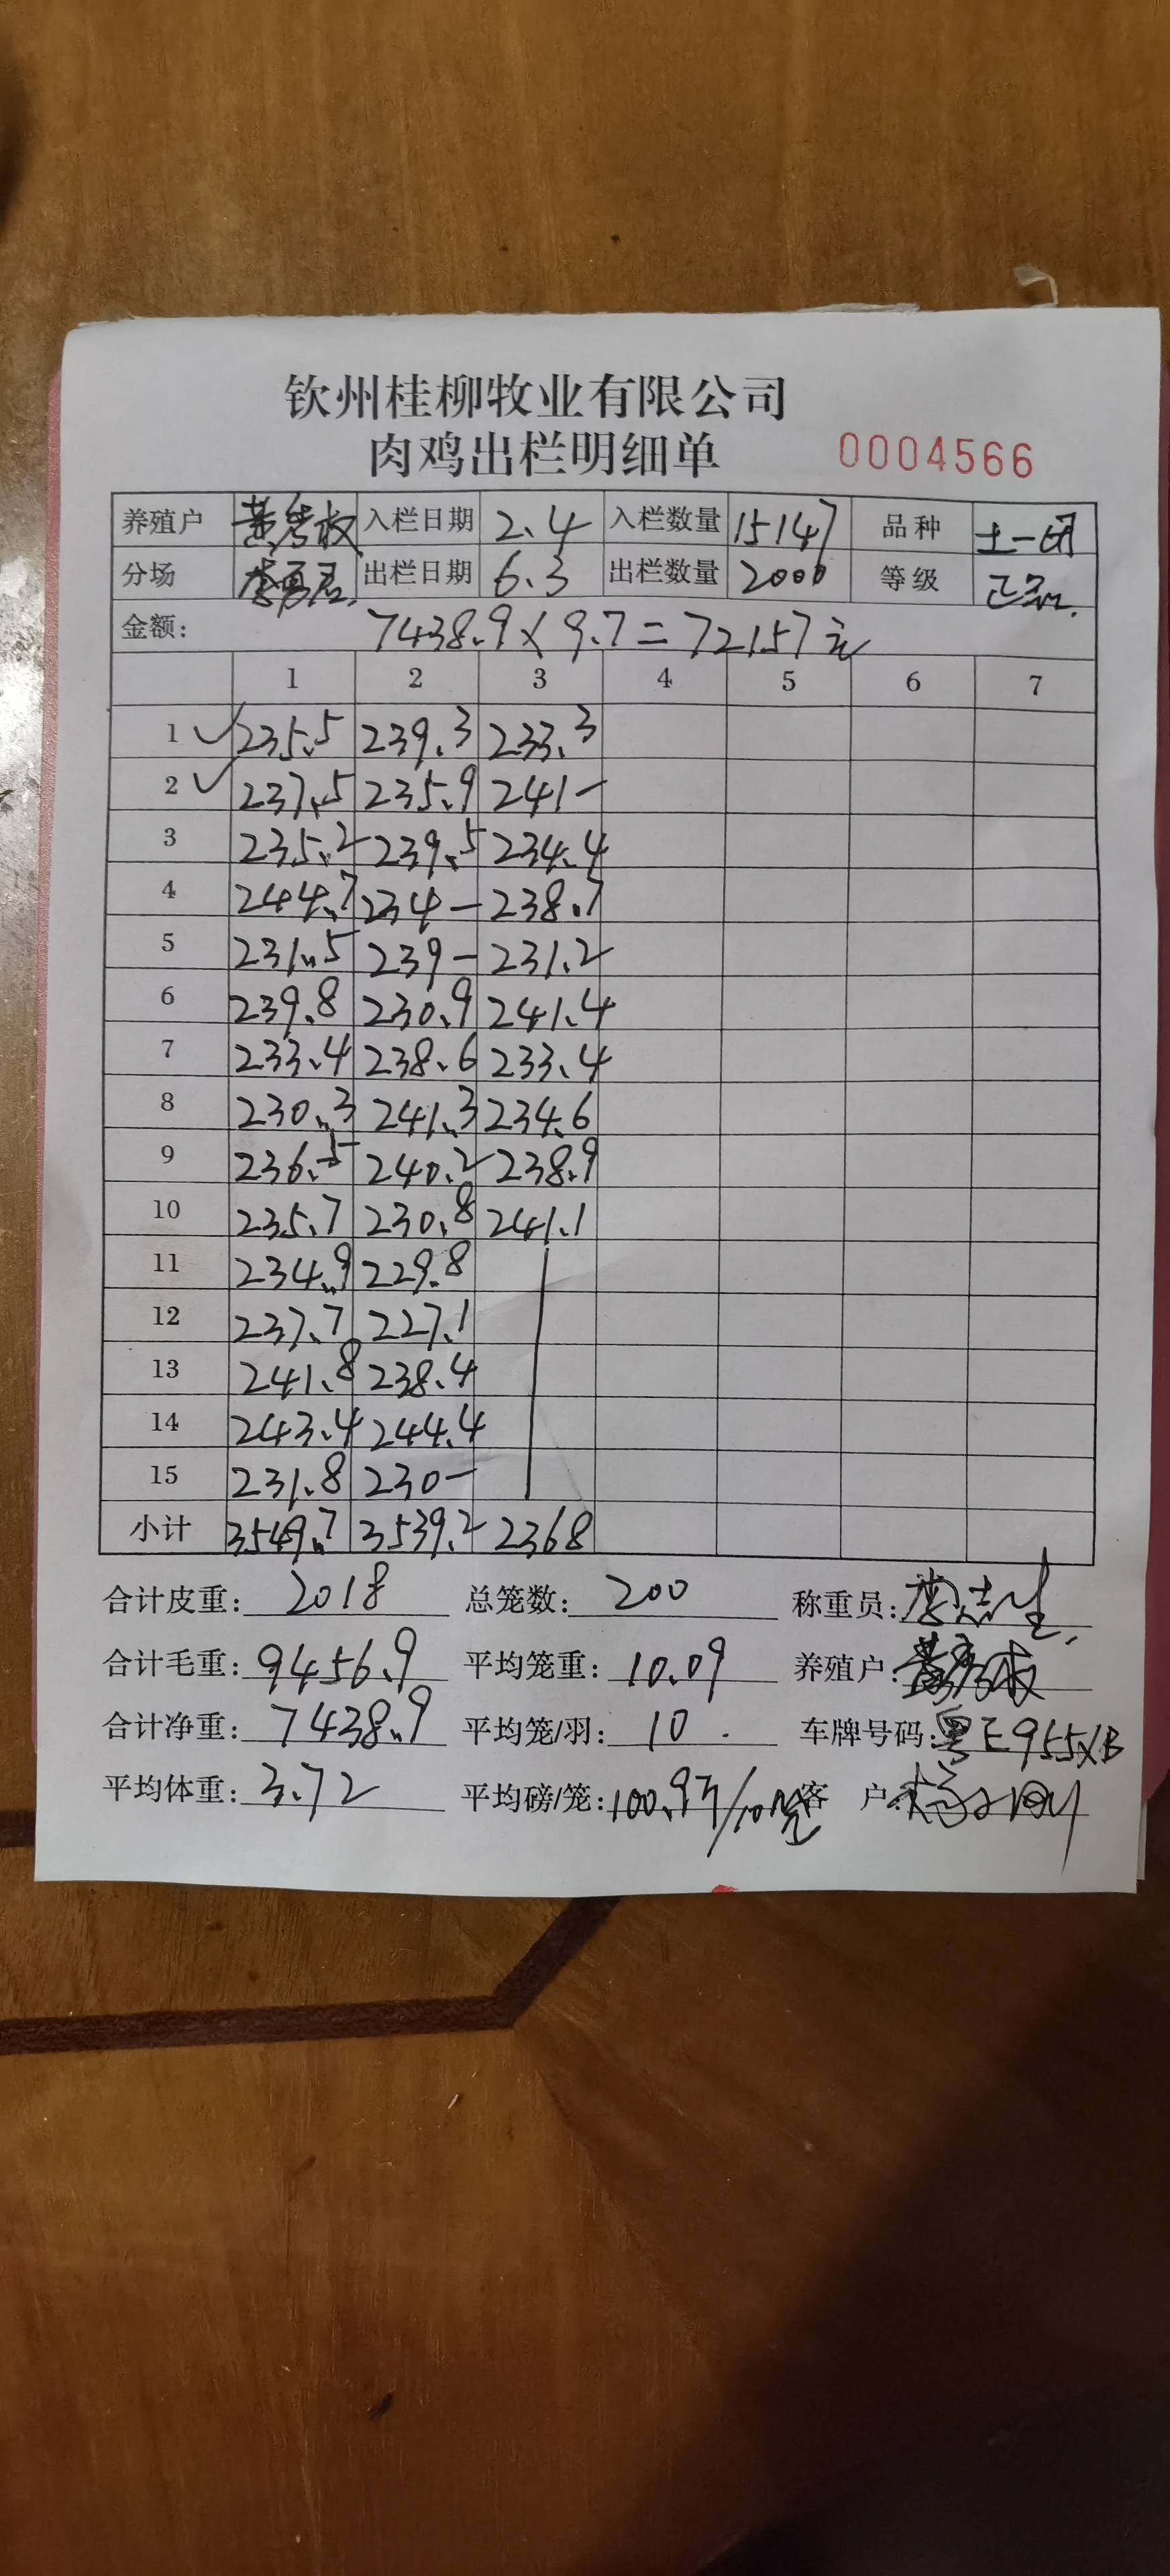 钦州桂柳牧业有限公司
肉鸡出栏明细单 0004566
养殖户 入栏日期 2.4 入栏数量 15147 品种 土一
分场 李勇 出栏日期 6.3 出栏数量 2000 等级 正
金额: 7438.9×9.7=72157元
1 2 3 4 5 6 7
1 ✓ 235.5 239.3 233.3
2 ✓ 237.5 235.9 241-
3 235.2 239.5 234.4
4 244.7 234- 238.7
5 231.5 239- 231.2
6 239.8 230.9 241.4
7 233.4 238.6 233.4
8 230.3 241.3 234.6
9 236.5 240.2 238.9
10 235.7 230.8 241.1
11 234.9 229.8
12 237.7 227.1
13 241.8 238.4
14 243.4 244.4
15 231.8 230-
小计 3549.7 3539.2 2368
合计皮重: 2018 总笼数: 200 称重员: 李志生
合计毛重: 9456.9 平均笼重: 10.09 养殖户:
合计净重: 7438.9 平均笼/羽: 10. 车牌号码: 粤E955XB
平均体重: 3.72 平均磅/笼: 100.9 客 户: